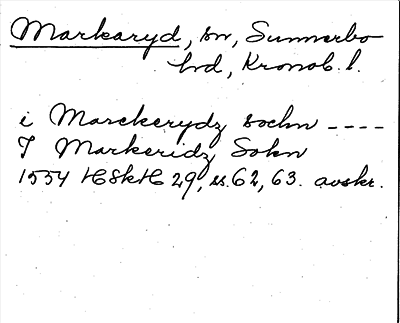 Markaryd, sn, Sunnerbo
hd, Kronob. l.
i Marckerydz sochn ----
I Markeridz Sokn
1554 HSkH 29, ss. 62, 63. avskr.